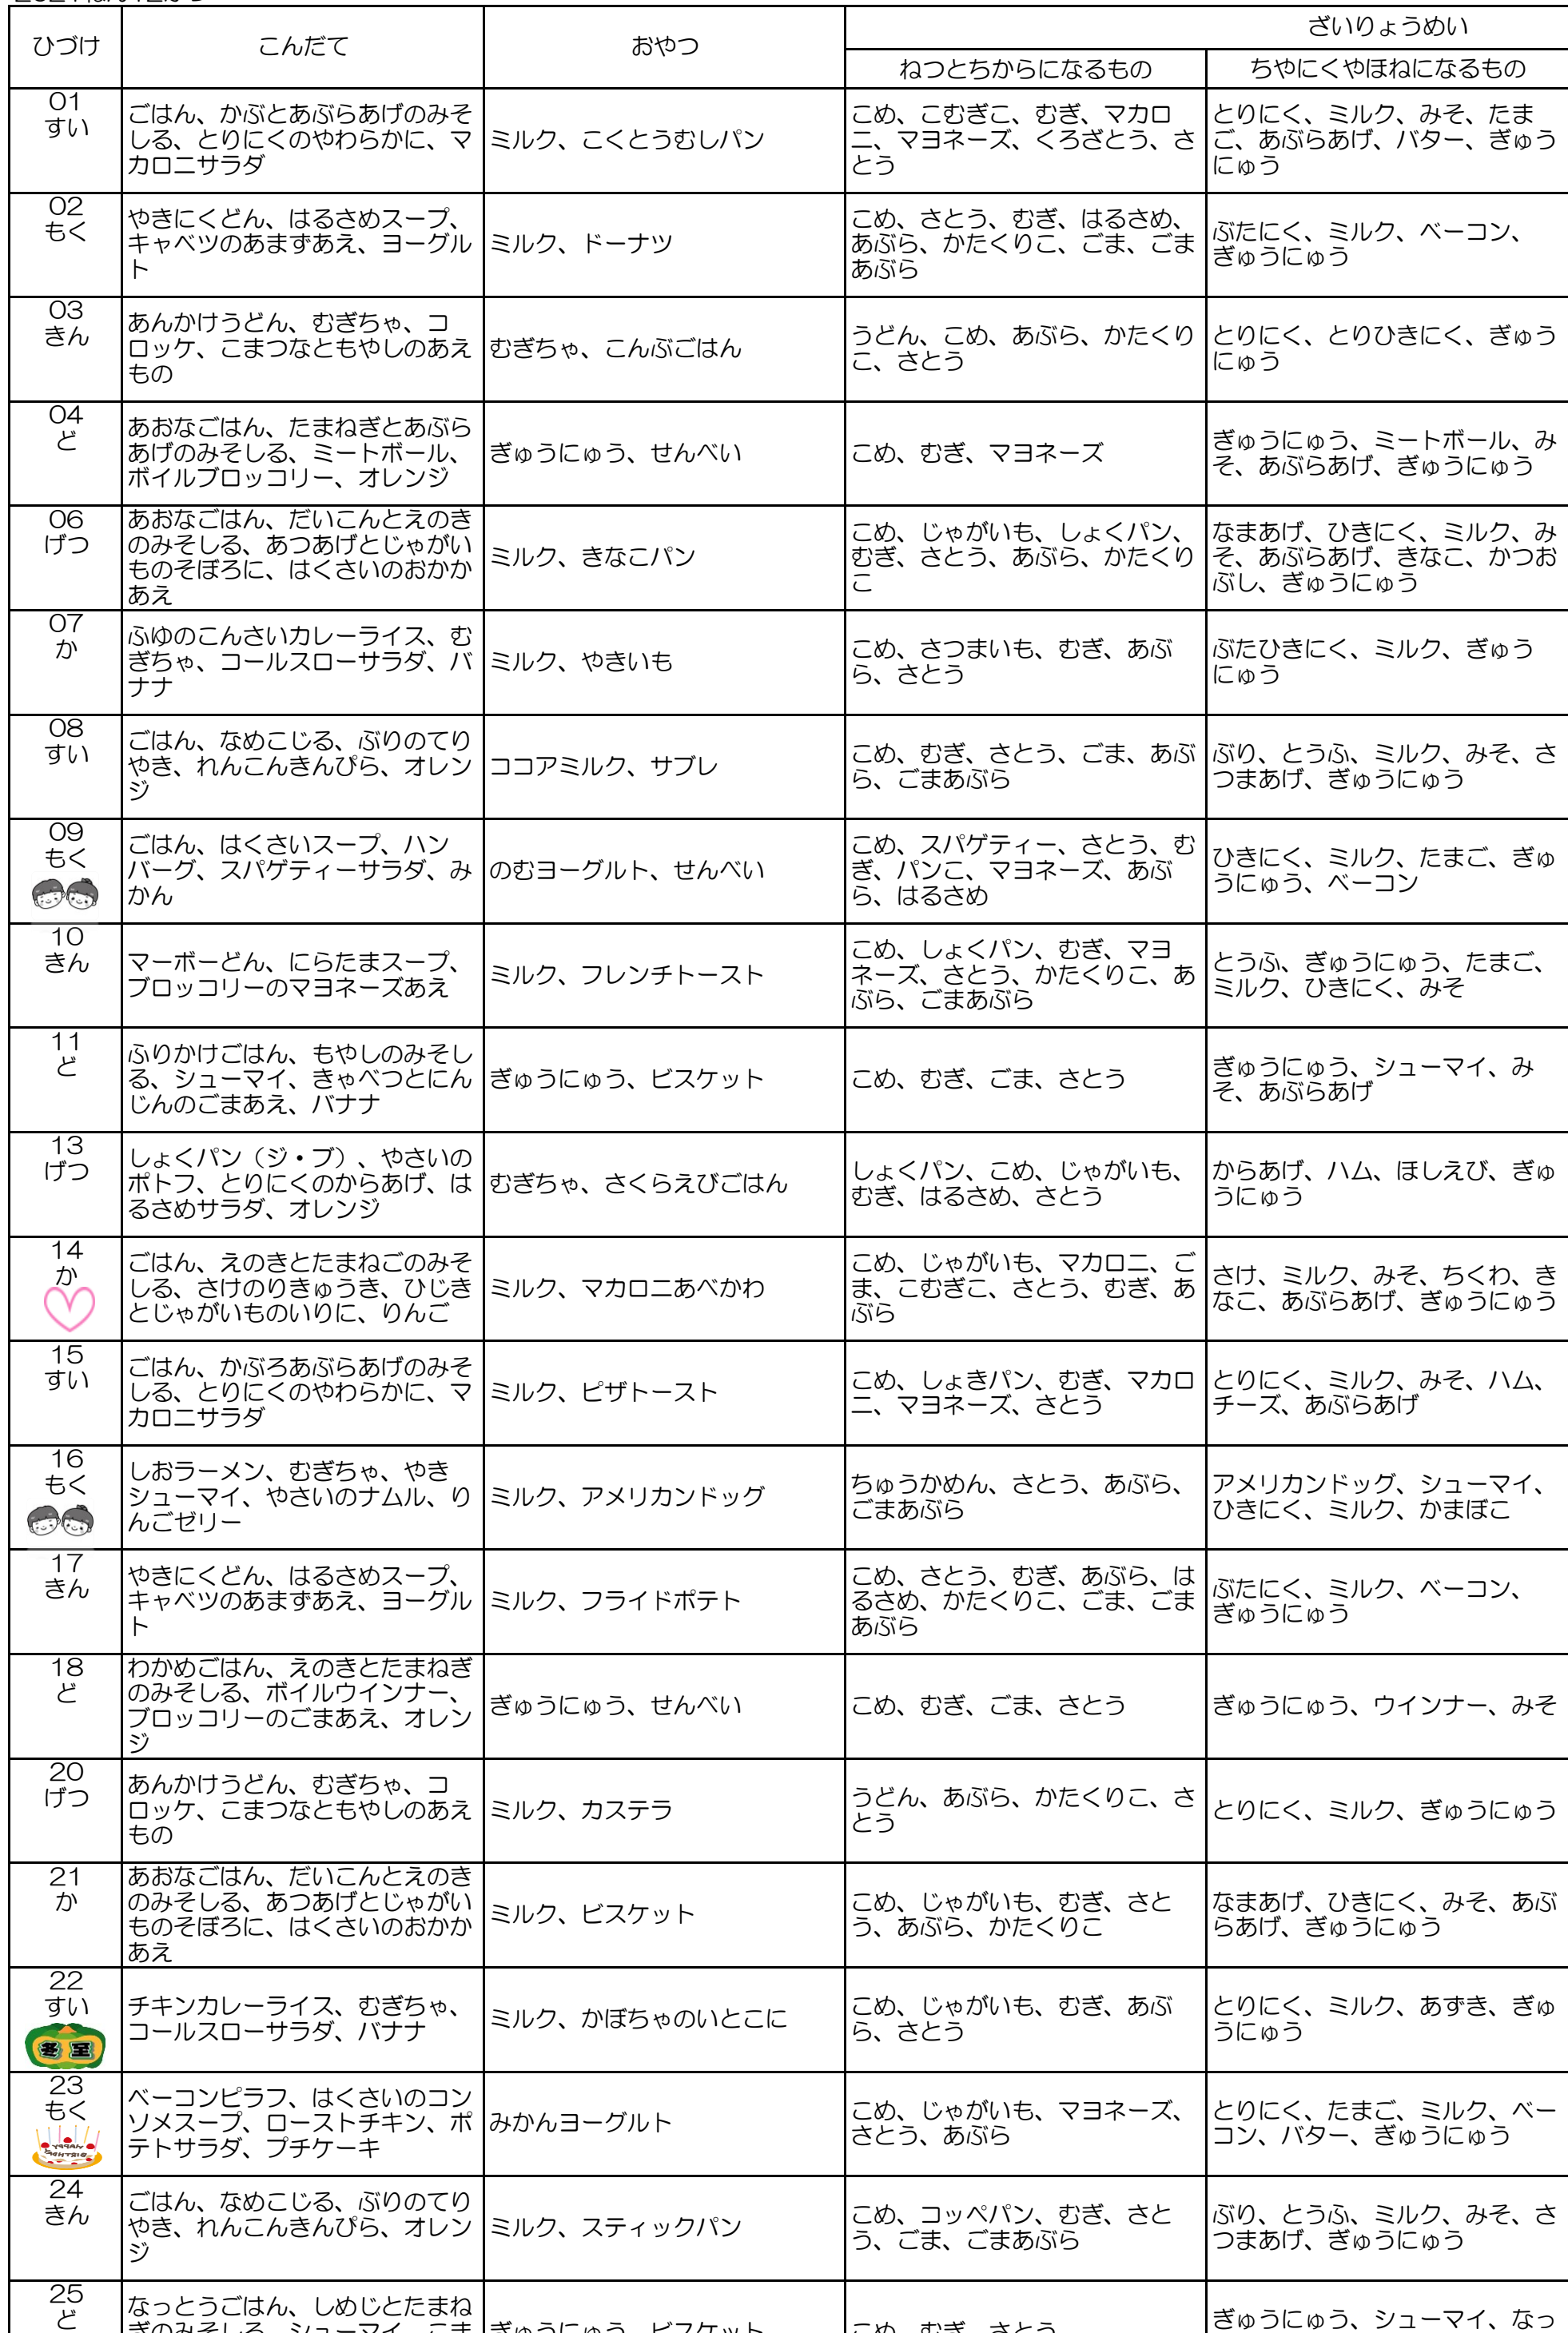 ざいりょうめい
ひづけ
こんだて
おやつ
ねつとちからになるもの
ちやにくやほねになるもの
01
すい
ごはん、かぶとあぶらあげのみそ
しる、とりにくのやわらかに、マ
カロニサラダ
ミルク、こくとうむしパン
こめ、こむぎこ、むぎ、マカロ
ニ、マヨネーズ、くろざとう、さ
とう
とりにく、ミルク、みそ、たま
ご、あぶらあげ、バター、ぎゅう
にゅう
02
もく
やきにくどん、はるさめスープ、
キャベツのあまずあえ、ヨーグル
ト
ミルク、ドーナツ
こめ、さとう、むぎ、はるさめ、
あぶら、かたくりこ、ごま、ごま
あぶら
ぶたにく、ミルク、ベーコン、
ぎゅうにゅう
03
きん
あんかけうどん、むぎちゃ、コ
ロッケ、こまつなともやしのあえ
もの
むぎちゃ、こんぶごはん
うどん、こめ、あぶら、かたくり
こ、さとう
とりにく、とりひきにく、ぎゅう
にゅう
04
ど
あおなごはん、たまねぎとあぶら
あげのみそしる、ミートボール、
ボイルブロッコリー、オレンジ
ぎゅうにゅう、せんべい
こめ、むぎ、マヨネーズ
ぎゅうにゅう、ミートボール、み
そ、あぶらあげ、ぎゅうにゅう
06
げつ
あおなごはん、だいこんとえのき
のみそしる、あつあげとじゃがい
ものそぼろに、はくさいのおかか
あえ
ミルク、きなこパン
こめ、じゃがいも、しょくパン、
むぎ、さとう、あぶら、かたくり
こ
なまあげ、ひきにく、ミルク、み
そ、あぶらあげ、きなこ、かつお
ぶし、ぎゅうにゅう
07
か
ふゆのこんさいカレーライス、む
ぎちゃ、コールスローサラダ、バ
ナナ
ミルク、やきいも
こめ、さつまいも、むぎ、あぶ
ら、さとう
ぶたひきにく、ミルク、ぎゅう
にゅう
08
すい
ごはん、なめこじる、ぶりのてり
やき、れんこんきんぴら、オレン
ジ
ココアミルク、サブレ
こめ、むぎ、さとう、ごま、あぶ
ら、ごまあぶら
ぶり、とうふ、ミルク、みそ、さ
つまあげ、ぎゅうにゅう
09
もく
ごはん、はくさいスープ、ハン
バーグ、スパゲティーサラダ、み
かん
のむヨーグルト、せんべい
こめ、スパゲティー、さとう、む
ぎ、パンこ、マヨネーズ、あぶ
ら、はるさめ
ひきにく、ミルク、たまご、ぎゅ
うにゅう、ベーコン
10
きん
マーボーどん、にらたまスープ、
ブロッコリーのマヨネーズあえ
ミルク、フレンチトースト
こめ、しょくパン、むぎ、マヨ
ネーズ、さとう、かたくりこ、あ
ぶら、ごまあぶら
とうふ、ぎゅうにゅう、たまご、
ミルク、ひきにく、みそ
11
ど
ふりかけごはん、もやしのみそし
る、シューマイ、きゃべつとにん
じんのごまあえ、バナナ
ぎゅうにゅう、ビスケット
こめ、むぎ、ごま、さとう
ぎゅうにゅう、シューマイ、み
そ、あぶらあげ
13
げつ
しょくパン（ジ・ブ）、やさいの
ポトフ、とりにくのからあげ、は
るさめサラダ、オレンジ
むぎちゃ、さくらえびごはん
しょくパン、こめ、じゃがいも、
むぎ、はるさめ、さとう
からあげ、ハム、ほしえび、ぎゅ
うにゅう
14
か
ごはん、えのきとたまねごのみそ
しる、さけのりきゅうき、ひじき
とじゃがいものいりに、りんご
ミルク、マカロニあべかわ
こめ、じゃがいも、マカロニ、ご
ま、こむぎこ、さとう、むぎ、あ
ぶら
さけ、ミルク、みそ、ちくわ、き
なこ、あぶらあげ、ぎゅうにゅう
15
すい
ごはん、かぶろあぶらあげのみそ
しる、とりにくのやわらかに、マ
カロニサラダ
ミルク、ピザトースト
こめ、しょきパン、むぎ、マカロ
ニ、マヨネーズ、さとう
とりにく、ミルク、みそ、ハム、
チーズ、あぶらあげ
16
もく
しおラーメン、むぎちゃ、やき
シューマイ、やさいのナムル、り
んごゼリー
ミルク、アメリカンドッグ
ちゅうかめん、さとう、あぶら、
ごまあぶら
アメリカンドッグ、シューマイ、
ひきにく、ミルク、かまぼこ
17
きん
やきにくどん、はるさめスープ、
キャベツのあまずあえ、ヨーグル
ト
ミルク、フライドポテト
こめ、さとう、むぎ、あぶら、は
るさめ、かたくりこ、ごま、ごま
あぶら
ぶたにく、ミルク、ベーコン、
ぎゅうにゅう
18
ど
わかめごはん、えのきとたまねぎ
のみそしる、ボイルウインナー、
ブロッコリーのごまあえ、オレン
ジ
ぎゅうにゅう、せんべい
こめ、むぎ、ごま、さとう
ぎゅうにゅう、ウインナー、みそ
20
げつ
あんかけうどん、むぎちゃ、コ
ロッケ、こまつなともやしのあえ
もの
ミルク、カステラ
うどん、あぶら、かたくりこ、さ
とう
とりにく、ミルク、ぎゅうにゅう
21
か
あおなごはん、だいこんとえのき
のみそしる、あつあげとじゃがい
ものそぼろに、はくさいのおかか
あえ
ミルク、ビスケット
こめ、じゃがいも、むぎ、さと
う、あぶら、かたくりこ
なまあげ、ひきにく、みそ、あぶ
らあげ、ぎゅうにゅう
22
すい
冬至
チキンカレーライス、むぎちゃ、
コールスローサラダ、バナナ
ミルク、かぼちゃのいとこに
こめ、じゃがいも、むぎ、あぶ
ら、さとう
とりにく、ミルク、あずき、ぎゅ
うにゅう
23
もく
ベーコンピラフ、はくさいのコン
ソメスープ、ローストチキン、ポ
テトサラダ、プチケーキ
みかんヨーグルト
こめ、じゃがいも、マヨネーズ、
さとう、あぶら
とりにく、たまご、ミルク、ベー
コン、バター、ぎゅうにゅう
24
きん
ごはん、なめこじる、ぶりのてり
やき、れんこんきんぴら、オレン
ジ
ミルク、スティックパン
こめ、コッペパン、むぎ、さと
う、ごま、ごまあぶら
ぶり、とうふ、ミルク、みそ、さ
つまあげ、ぎゅうにゅう
25
ど
なっとうごはん、しめじとたまね
ぎのみそしる、シューマイ、こま
ぎゅうにゅう、ビスケット
こめ、むぎ、さとう
ぎゅうにゅう、シューマイ、なっ